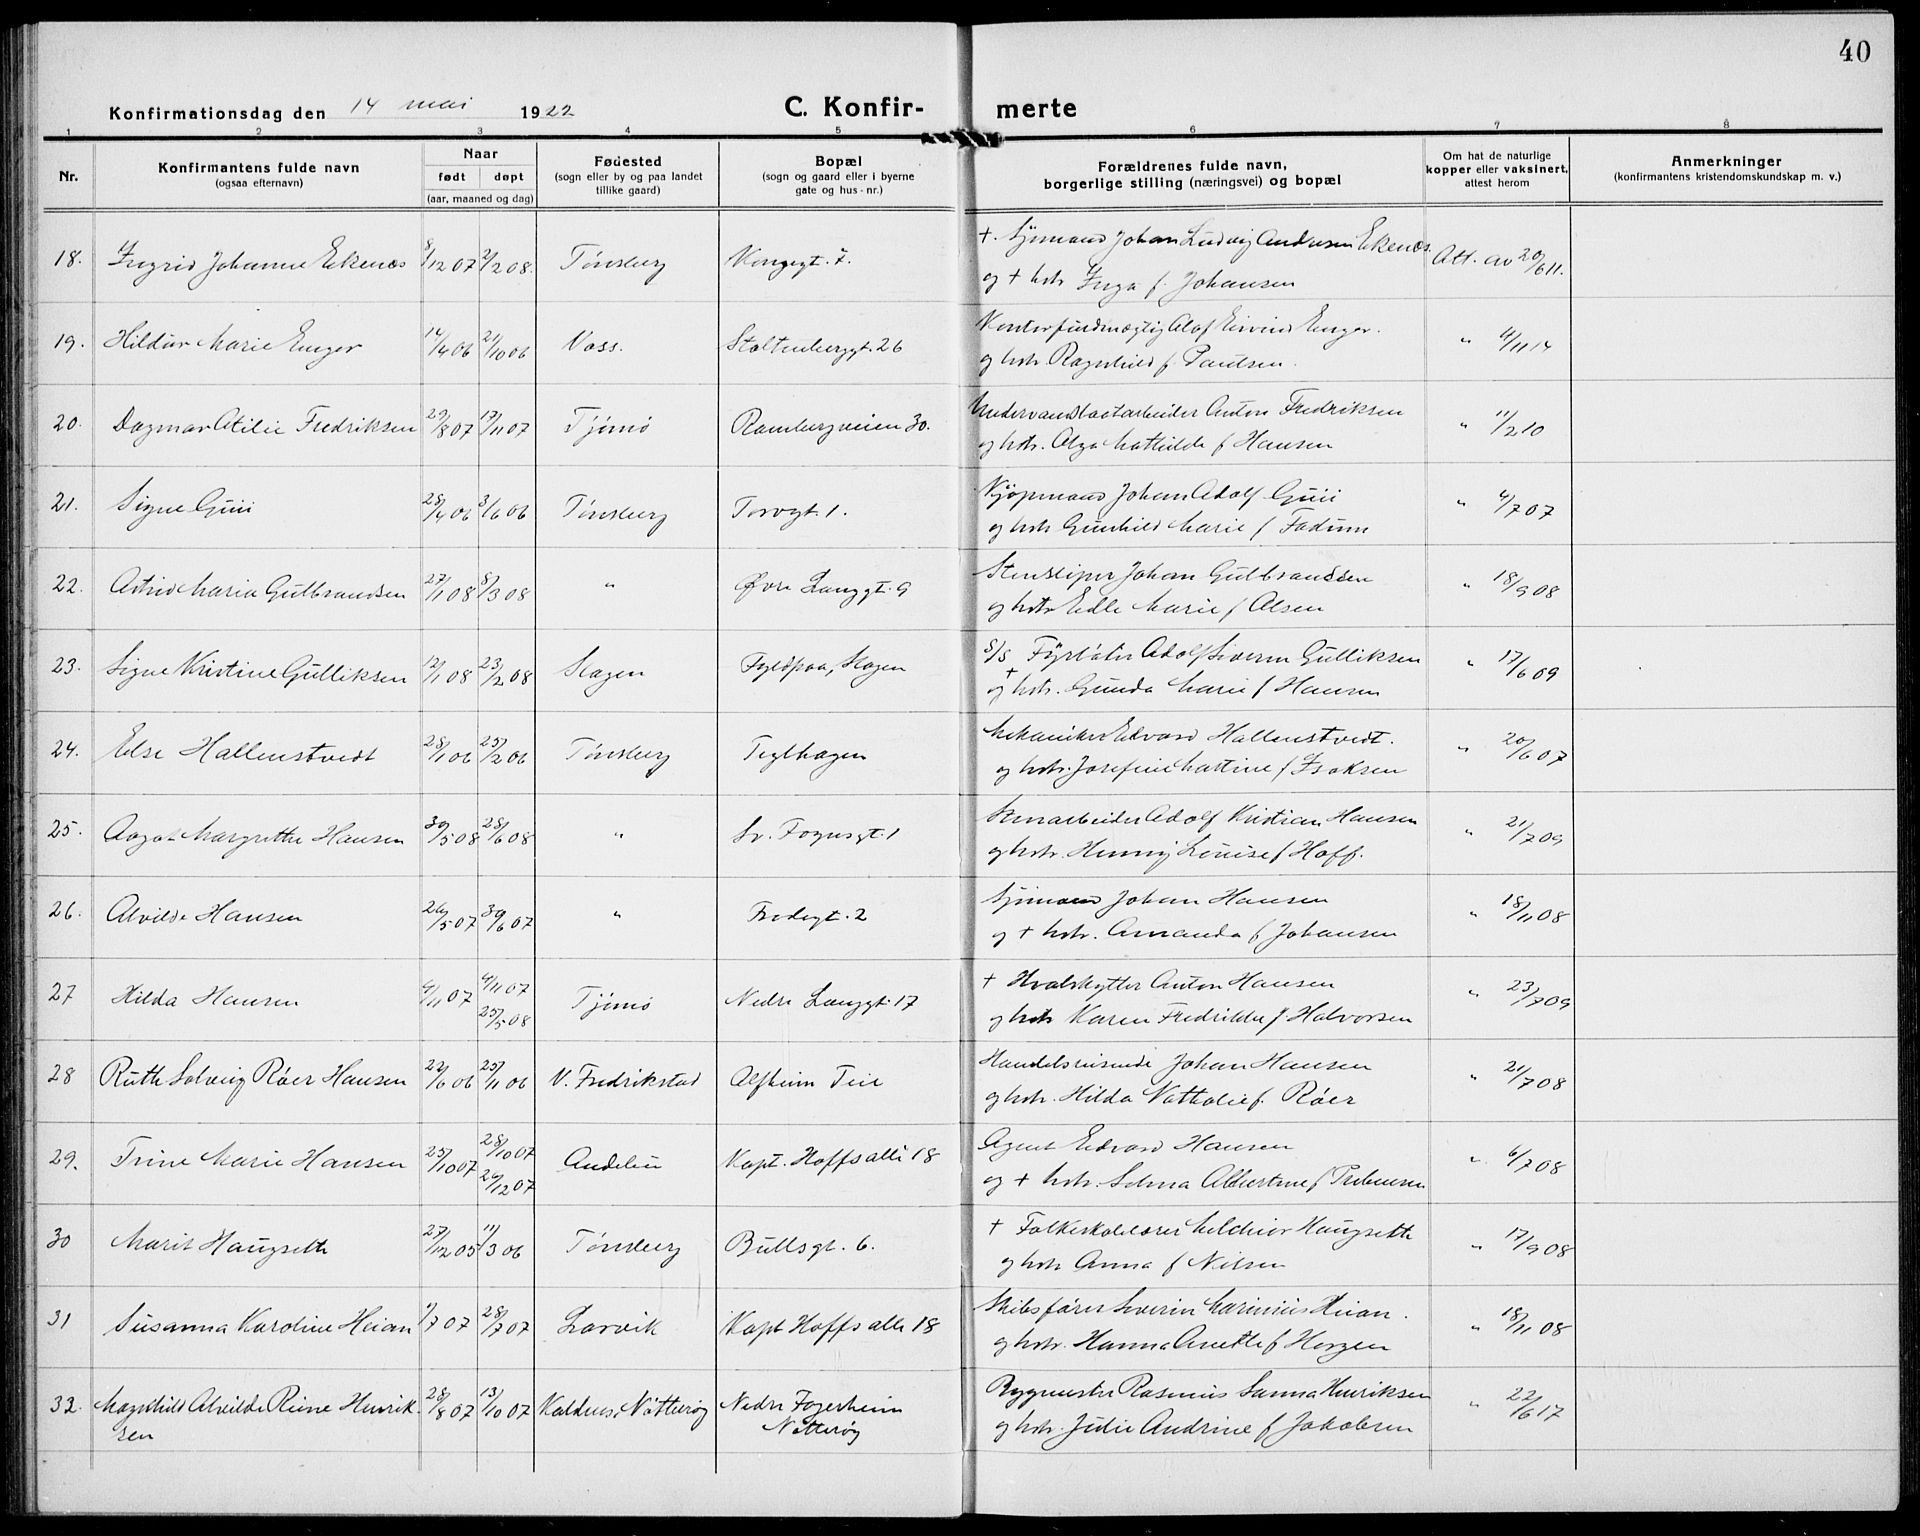 40
Konfirmationsdag den 14 mai 1922
C. Konfir- merte
1 2 3 4 5 6 7 8
Nr.
Konfirmantens fulde navn
(ogsaa efternavn)
Naar
født døpt
(aar, maaned og dag)
Fødested
(sogn eller by og paa landet
tillike gaard)
Bopæl
(sogn og gaard eller i byerne
gate og hus-nr.)
Forældrenes fulde navn,
borgerlige stilling (næringsvei) og bopæl
Om hat de naturlige
kopper eller vaksinert,
attest herom
Anmerkninger
(konfirmantens kristendomskundskap m. v.)
18. Ingrid Johanne Ekenæs 8/12 07 2/2 08. Tønsberg Kongegt. 7. + Sjømand Johan Ludvig Andersen Ekenæs Att. av 20/6 11.
og + hstr Inga f. Johansen
19. Hildur Marie Enger 14/4 06 21/10 06 Voss. Stoltenberggt. 26 Kontorfuldmægtig Olaf Eivind Enger. " 4/11 14
og hstr. Ragnhild f. Paulsen.
20. Dagmar Otilie Fredriksen 29/8 07 17/11 07 Tjømø Rambergveien 30. Anton Fredriksen " 11/2 10
og hstr. Olga Mathilde f Hansen
21. Signe Guii 28/4 06 3/6 06 Tønsberg Torvgt. 1. Kjøpmand Johan Adolf Guii " 4/7 07
og hstr Gunhild Marie f Fadum
22. Astrid Maria Gulbrandsen 27/1 08 8/3 08 " Øvre Langgt. 9 Stensliper Johan Gulbrandsen " 18/9 08
og hstr Edle Marie f Olsen
23. Signe Kristine Gulliksen 12/1 08 23/2 08 Slagen Fyldpaa, Slagen S/S Fyrbøter Adolf Severin Gulliksen " 17/6 09
og + hstr. Gunda Marie f Hansen
24. Else Hallenstvedt 28/1 06 25/2 06 Tønsberg Teglhagen Mekaniker Edvard Hallenstvedt. " 20/6 07
og hstr. Josefine Martine f Isaksen
25. Aagot Margrethe Hansen 30/5 08 28/6 08 " Sv. Foynsgt. 1 Stenarbeider Adolf Kristian Hansen " 21/7 09
og hstr. Henny Louise f Hoff.
26. Alvilde Hansen 26/5 07 30/6 07 " Frodegt. 2 Sjømand Johan Hansen " 18/11 08
og + hstr. Amanda f Johansen
27 Hilda Hansen 4/11 07 4/11 07 25/5 08 Tjømø Nedre Langgt. 17 + Hvalskytter Anton Hansen " 23/7 09
og hstr Karen Fredrikke f Halvorsen
28 Ruth Solveig Røer Hansen 22/6 06 25/11 06 V. Fredrikstad Alfheim Teie Handelsreisende Johan Hansen " 21/7 08
og hstr. Hilda Nathalie f. Røer
29. Trine Marie Hansen 25/10 07 28/10 07 26/12 07 Andebu Kapt. Hoffs alle 18 Agent Edvard Hansen " 6/7 08
og + hstr. Selma Albertine f Prebensen
30 Marit Haugseth 27/12 05 11/3 06 Tønsberg Bullsgt. 6. + Folkeskolelærer Melchior Haugseth " 17/9 08
og hstr Anna f Nilsen
31 Susanna Karoline Heian 1/7 07 28/7 07 Larvik Kapt Hoffs alle 18 Skibsfører Severin Marinius Heian. " 18/11 08
og hstr. Hanna Anette f Horgen
32. Magnhild Alvilde Reine Henrik- 28/8 07 13/10 07 Kaldnes, Nøtterøy Nedre Fogerheim Bygmester Rasmus Sanna Henriksen " 22/6 17
sen Nøtterøy og hstr. Julie Andrine f Jakobsen